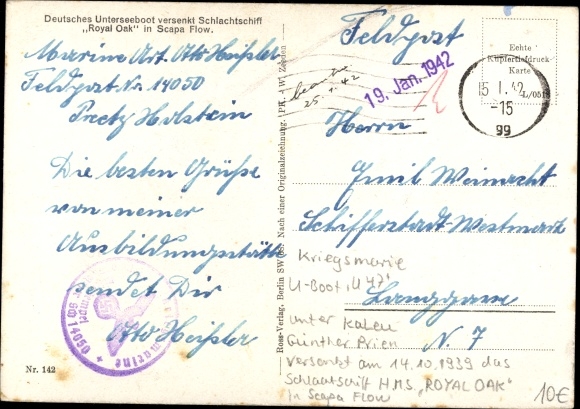 Deutsches Unterseeboot versenkt Schlachtschiff
„Royal Oak" in Scapa Flow.
Marine Art. Otto Heißler
Feldpost Nr. 14050
Preetz Holstein
Die besten Grüße
von meiner
Ausbildungsstätte
sendet Dir
Otto Heißler
14050
Nr. 142
Ross-Verlag, Berlin SW 68. Nach einer Originalzeichnung. PK.
Feldpost
Echte
Kupfertiefdruck-
Karte
L/0519
25. 1. 42
19. Jan. 1942
15. 1. 42
-15
gg
Herrn
Emil Weinacht
Schifferstadt-Westmark
Langgasse
N. 7
Kriegsmarine
U-Boot „U 47"
unter
Günther Prien
versenkt am 14.10.1939 das
Schlachtschiff H.M.S. „ROYAL OAK"
in Scapa Flow
10€